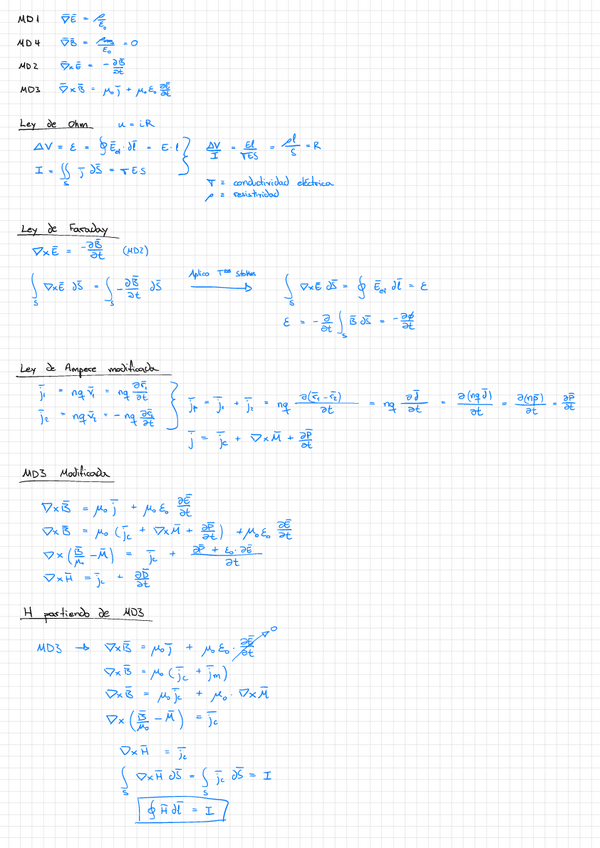 MD1 ∇Ē = ρ/ε₀
MD4 ∇B̄ = ρm/ε₀ = 0
MD2 ∇̄×Ē = -∂B̄/∂t
MD3 ∇̄×B̄ = μ₀ j̄ + μ₀ ε₀ ∂Ē/∂t
Ley de Ohm u = iR
ΔV = ε = ∮ Ē_el · dl̄ = E·l
I = ∬_S j̄ dS̄ = σES
ΔV/I = El/σES = ρl/S = R
σ = conductividad eléctrica
ρ = resistividad
Ley de Faraday
∇×Ē = -∂B̄/∂t (MD2)
∫_S ∇×Ē dS̄ = ∫_S -∂B̄/∂t dS̄ Aplico Tma Stokes ∫_S ∇×Ē dS̄ = ∮ Ē_el dl̄ = ε
ε = -∂/∂t ∫_S B̄ dS̄ = -∂φ/∂t
Ley de Ampere modificada
j̄₁ = nq v̄₁ = nq ∂r̄₁/∂t
j̄₂ = nq v̄₂ = -nq ∂r̄₂/∂t
j̄p = j̄₁ + j̄₂ = nq ∂(r̄₁-r̄₂)/∂t = nq ∂d̄/∂t = ∂(nq d̄)/∂t = ∂(np̄)/∂t = ∂P̄/∂t
j̄ = j̄c + ∇×M̄ + ∂P̄/∂t
MD3 Modificada
∇×B̄ = μ₀ j̄ + μ₀ ε₀ ∂Ē/∂t
∇×B̄ = μ₀ (j̄c + ∇×M̄ + ∂P̄/∂t) + μ₀ ε₀ ∂Ē/∂t
∇×(B̄/μ₀ - M̄) = j̄c + ∂P̄ + ε₀·∂Ē/∂t
∇×H̄ = j̄c + ∂D̄/∂t
H partiendo de MD3
MD3 → ∇×B̄ = μ₀ j̄ + μ₀ ε₀ · ∂Ē/∂t 0
∇×B̄ = μ₀ (j̄c + j̄m)
∇×B̄ = μ₀ j̄c + μ₀ · ∇×M̄
∇×(B̄/μ₀ - M̄) = j̄c
∇×H̄ = j̄c
∫_S ∇×H̄ dS̄ = ∫_S j̄c dS̄ = I
∮ H̄ dl̄ = I